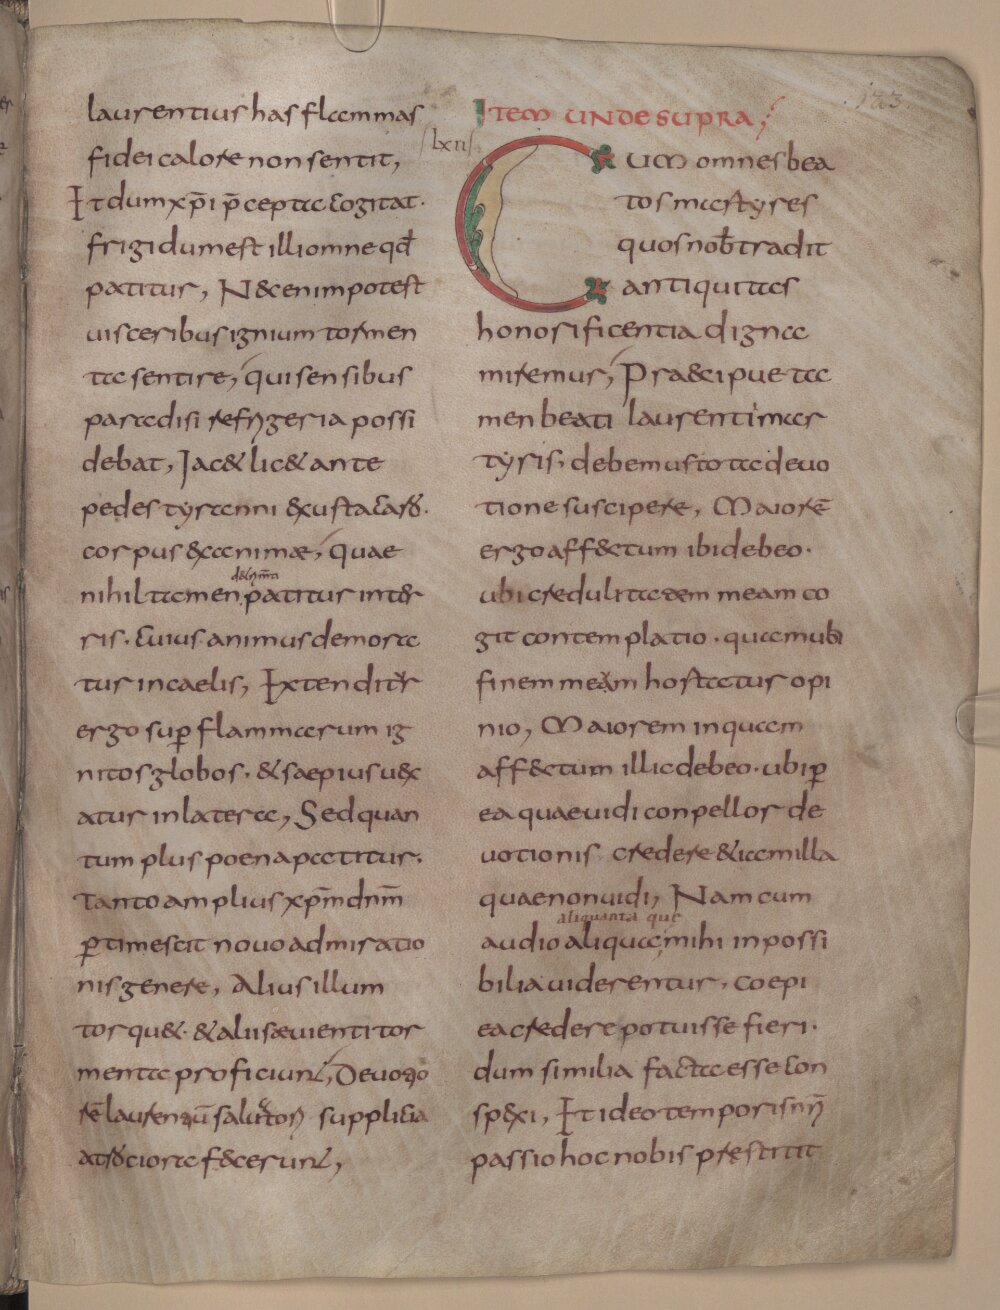 laurentius has flammas
fidei calore non sentit,
Et dum xp̄i p̄cepta cogitat.
frigidum est illi omne qđ
patitur, Nec enim potest
visceribus ignium tormen
ta sentire, qui sensibus
paradisi refrigeria possi
debat, Iacet licet ante
pedes tyranni exusta caro.
corpus exanimae, quae
nihil tamen patitur inter
ris. cuius animus demora
tur in caelis, Extenditur
ergo sup flammarum ig
nitos globos. et saepius vex
atur in latera, Sed quan
tum plus poena patitur.
Tanto amplius xp̄m dnm̄
pertimescit novo admiratio
nis genere, Alius illum
torquet. et alii saevienti tor
menta proficiunt, Devotio
rē laurentiū salvatori supplicia
atrociora fecerunt,
ITEM UNDE SUPRA;
lxii
CUM omnes bea
tos martyres
quos nob̄ tradit
antiquitas
honorificentia digna
miremur, Praecipue ta
men beati laurenti mar
tyris, debemus tota devo
tione suscipere, Maiorē
ergo affectum ibi debeo.
ubi credulitatem meam co
git contemplatio. quam ubi
finem meam hortatur opi
nio, Maiorem inquam
affectum illic debeo. ubi p
ea quae vidi conpellor de
votionis credere et iam illa
quae non vidi, Nam cum
aliquanta que
audio aliqua mihi inpossi
bilia viderentur, coepi
ea credere potuisse fieri.
dum similia facta esse con
spexi, Et ideo temporis nr̄i
passio hoc nobis prestitit